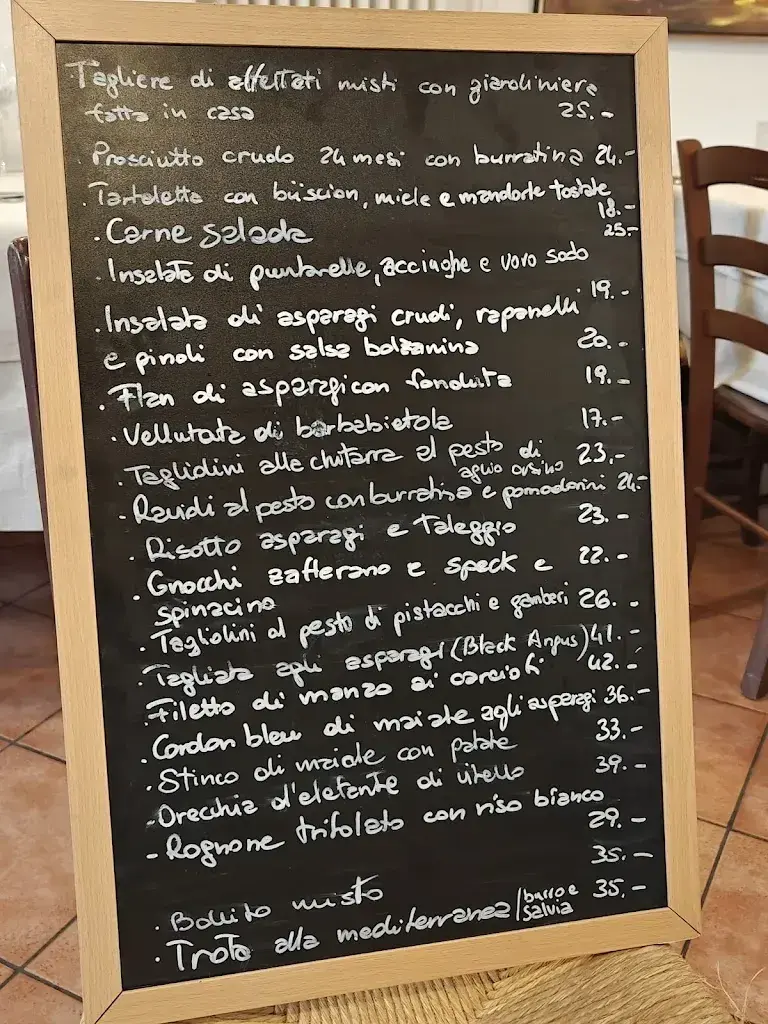 Tagliere di affettati misti con giardiniera
fatta in casa 25.-
Prosciutto crudo 24 mesi con burratina 24.-
· Tartoletta con büscion, miele e mandorle tostate
18.-
· Carne salada 25-
· Insalata di puntarelle, acciughe e uovo sodo
19.-
· Insalata di asparagi crudi, rapanelli
e pinoli con salsa bolzanina 20.-
· Flan di asparagi con fonduta 19.-
· Vellutata di barbabietola 17.-
· Tagliolini alla chitarra al pesto di 23.-
aglio orsino
· Ravioli al pesto con burratina e pomodorini 24.-
· Risotto asparagi e Taleggio 23.-
· Gnocchi zafferano e speck e 22.-
spinacino
· Tagliolini al pesto di pistacchi e gamberi 26.-
· Tagliata agli asparagi (Black Angus) 41.-
· Filetto di manzo ai carciofi 42.-
· Cordon bleu di maiale agli asparagi 36.-
· Stinco di maiale con patate 33.-
· Orecchia d'elefante di vitello 39.-
- Rognone trifolato con riso bianco
29.-
· Bollito misto 35.-
· Trota alla mediterranea / burro e 35.-
salvia